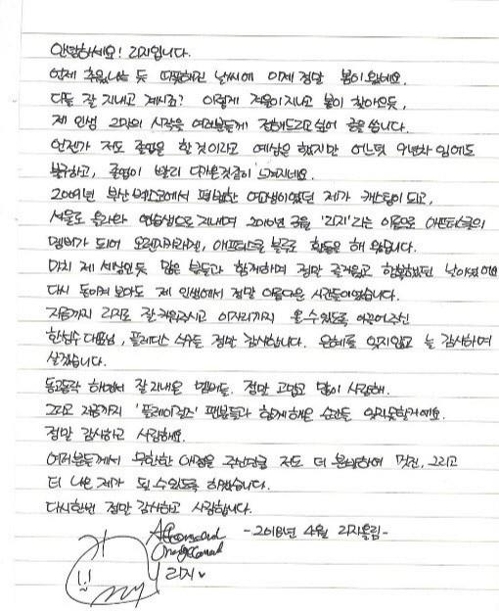 안녕하세요! 리지입니다.
언제 추웠냐는 듯 따뜻해진 날씨에 이제 정말 봄이 왔네요.
다들 잘 지내고 계시죠? 이렇게 겨울이 지나고 봄이 찾아오듯,
제 인생 2막의 시작을 여러분들께 전해드리고 싶어 글을 씁니다.
언젠가 저도 졸업을 할 것이라고 예상은 했지만 어느덧 9년차 임에도
불구하고, 졸업이 빨리 다가온것같이 느껴지네요.
2009년 부산 에서 평범한 여고생이었던 제가 캐스팅이 되고,
서울로 올라와 연습생으로 지내며 2010년 '리지'라는 이름으로 애프터스쿨의
멤버가 되어 오렌지캬라멜, 애프터스쿨 블루로 활동을 해 왔습니다.
마치 제 세상인듯 많은 분들과 함께하며 정말 즐거웠고 행복했던 날이었
다시 돌이켜 보아도 제 인생에서 정말 아름다운 시간들이었습니다.
지금까지 리지로 잘 키워주시고 이자리까지 올 수 있도록 이끌어주신
한성수 대표님, 플레디스 식구들 정말 감사합니다. 은혜를 잊지않고 늘 감사하며
살겠습니다.
동고동락 하면서 잘 지내온 멤버들. 정말 고맙고 많이 사랑해.
그리고 지금까지 '플레이걸즈' 팬분들과 함께 해온 순간들 잊지못할거에요.
정말 감사하고 사랑해요.
여러분들께서 무한한 애정을 주신만큼 저도 더 노력하여 멋진, 그리고
더 나은 제가 될 수 있도록 하겠습니다.
다시한번 정말 감사하고 사랑합니다.
-2018년 4월 리지올림-
Afterschool
Orange Caramel
리지♥